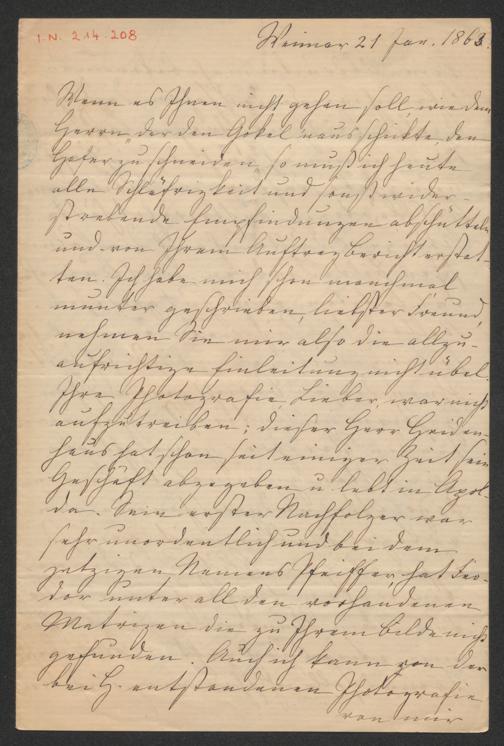 I.N. 214.208
Weimar 21 Jan. 1863.
Wenn es Ihnen nicht gehen soll, wie dem
Herrn, der den Gokel 'naus schickte, den
Hafer zu schneiden, so muß ich heute
alle Schläfrigkeit und sonst wider
strebende Empfindungen abschütteln
und von Ihrem Auftrag Bericht erstat-
ten. Ich habe mich schon manchmal
munter geschrieben, liebster Freund,
nehmen Sie mir also die allzu-
aufrichtige Einleitung nicht übel.
Ihre Photografie Lieber, war nicht
aufzutreiben; dieser Herr
haus hat schon seit einiger Zeit sein
Geschäft abgegeben u. lebt in Apol-
da. Sein erster Nachfolger war
sehr unordentlich und bei dem
jetzigen, Namens Pfeiffer, hat Feo-
dor unter all den vorhandenen
Matrizen die zu Ihrem Bilde nicht
gefunden. Auch ich kann von der
bei H. entstandenen Photografie
von mir